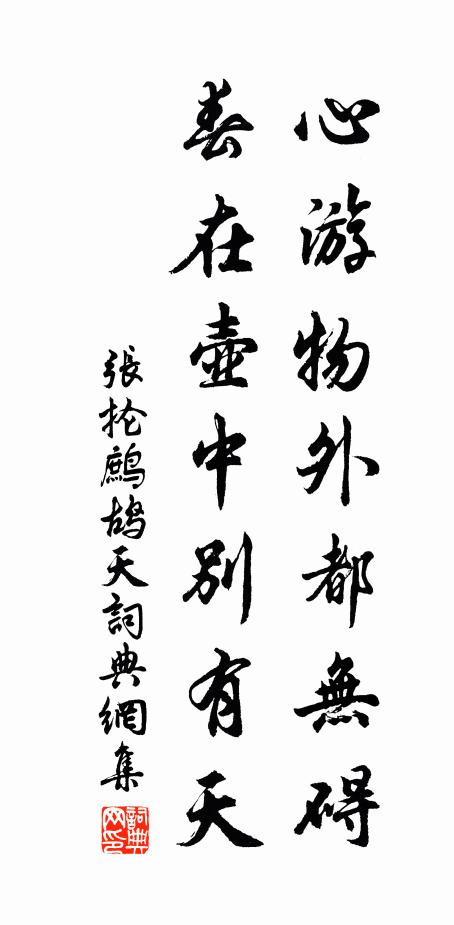 心游物外都無碍
春在壺中別有天
張抡鷓鴣天詞典網集
詞典网印